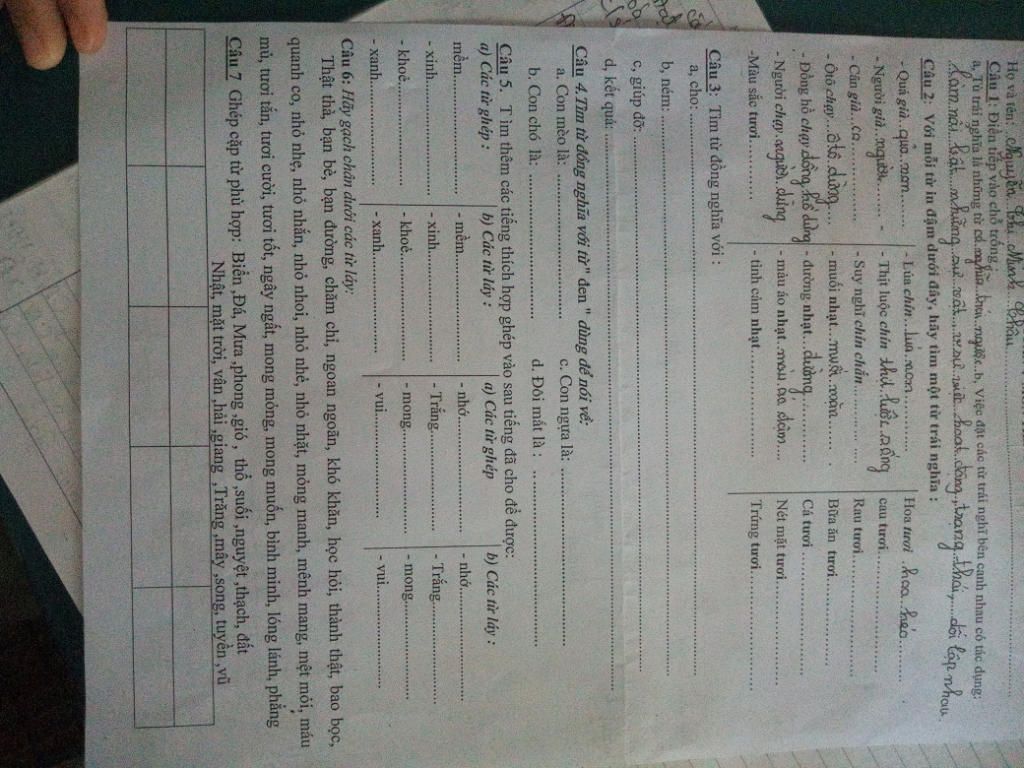 Họ và tên: Nguyễn Thị Minh Châu
Câu 1: Điền tiếp vào chỗ trống
a, Từ trái nghĩa là những từ có nghĩa trái ngược. b, Việc đặt các từ trái nghĩ bên cạnh nhau có tác dụng:
làm nổi bật những sự vật, sự việc hoạt động, trạng thái, đối lập nhau
Câu 2: Với mỗi từ in đậm dưới đây, hãy tìm một từ trái nghĩa :
- Quả già quả non......... - Lúa chín...lúa non....... Hoa tươi hoa héo........
- Người già...người....... - - Thịt luộc chín thịt luộc sống cau tươi...................
- Cân già....ca............ - Suy nghĩ chín chắn......... Rau tươi...................
- Ôtô chạy...ôtô dừng... - muối nhạt...muối mặn...... . Bữa ăn tươi...............
- Đồng hồ chạy đồng hồ dừng - đường nhạt...đường.......... Cá tươi....................
- Người chạy người dừng - màu áo nhạt màu áo đậm.... Nét mặt tươi..............
-Màu sắc tươi............ - tình cảm nhạt................. Trứng tươi ................
Câu 3: Tìm từ đồng nghĩa với :
a, cho: ..............................................................
b, ném: ..............................................................
c, giúp đỡ:..............................................................
d, kết quả: ..............................................................
Câu 4.Tìm từ đồng nghĩa với từ " đen " dùng để nói về:
a. Con mèo là: ........................ c. Con ngựa là: ........................
b. Con chó là: ........................ d. Đôi mắt là : ........................
Câu 5. Tìm thêm các tiếng thích hợp ghép vào sau tiếng đã cho để được:
a) Các từ ghép : b) Các từ láy : a) Các từ ghép b) Các từ láy :
mềm..................... - mềm..................... - nhớ..................... - nhớ.....................
- xinh..................... - xinh..................... - Trắng................... - Trắng...................
- khoẻ.................... - khoẻ.................... - mong................... - mong...................
- xanh.................... - xanh.................... - vui...................... - vui......................
Câu 6: Hãy gạch chân dưới các từ láy:
Thật thà, bạn bè, bạn đường, chăm chỉ, ngoan ngoãn, khó khăn, học hỏi, thành thật, bao bọc,
quanh co, nhỏ nhẹ, nhỏ nhắn, nhỏ nhoi, nhỏ nhẻ, nhỏ nhặt, mỏng manh, mênh mang, mệt mỏi, máu
mủ, tươi tắn, tươi cười, tươi tốt, ngây ngất, mong mỏng, mong muốn, bình minh, lóng lánh, phẳng
Câu 7 Ghép cặp từ phù hợp: Biển ,Đá, Mưa ,phong ,gió , thổ ,suối ,nguyệt ,thạch, đất
Nhật, mặt trời, vân ,hải ,giang ,Trăng ,mây ,song, tuyền ,vũ